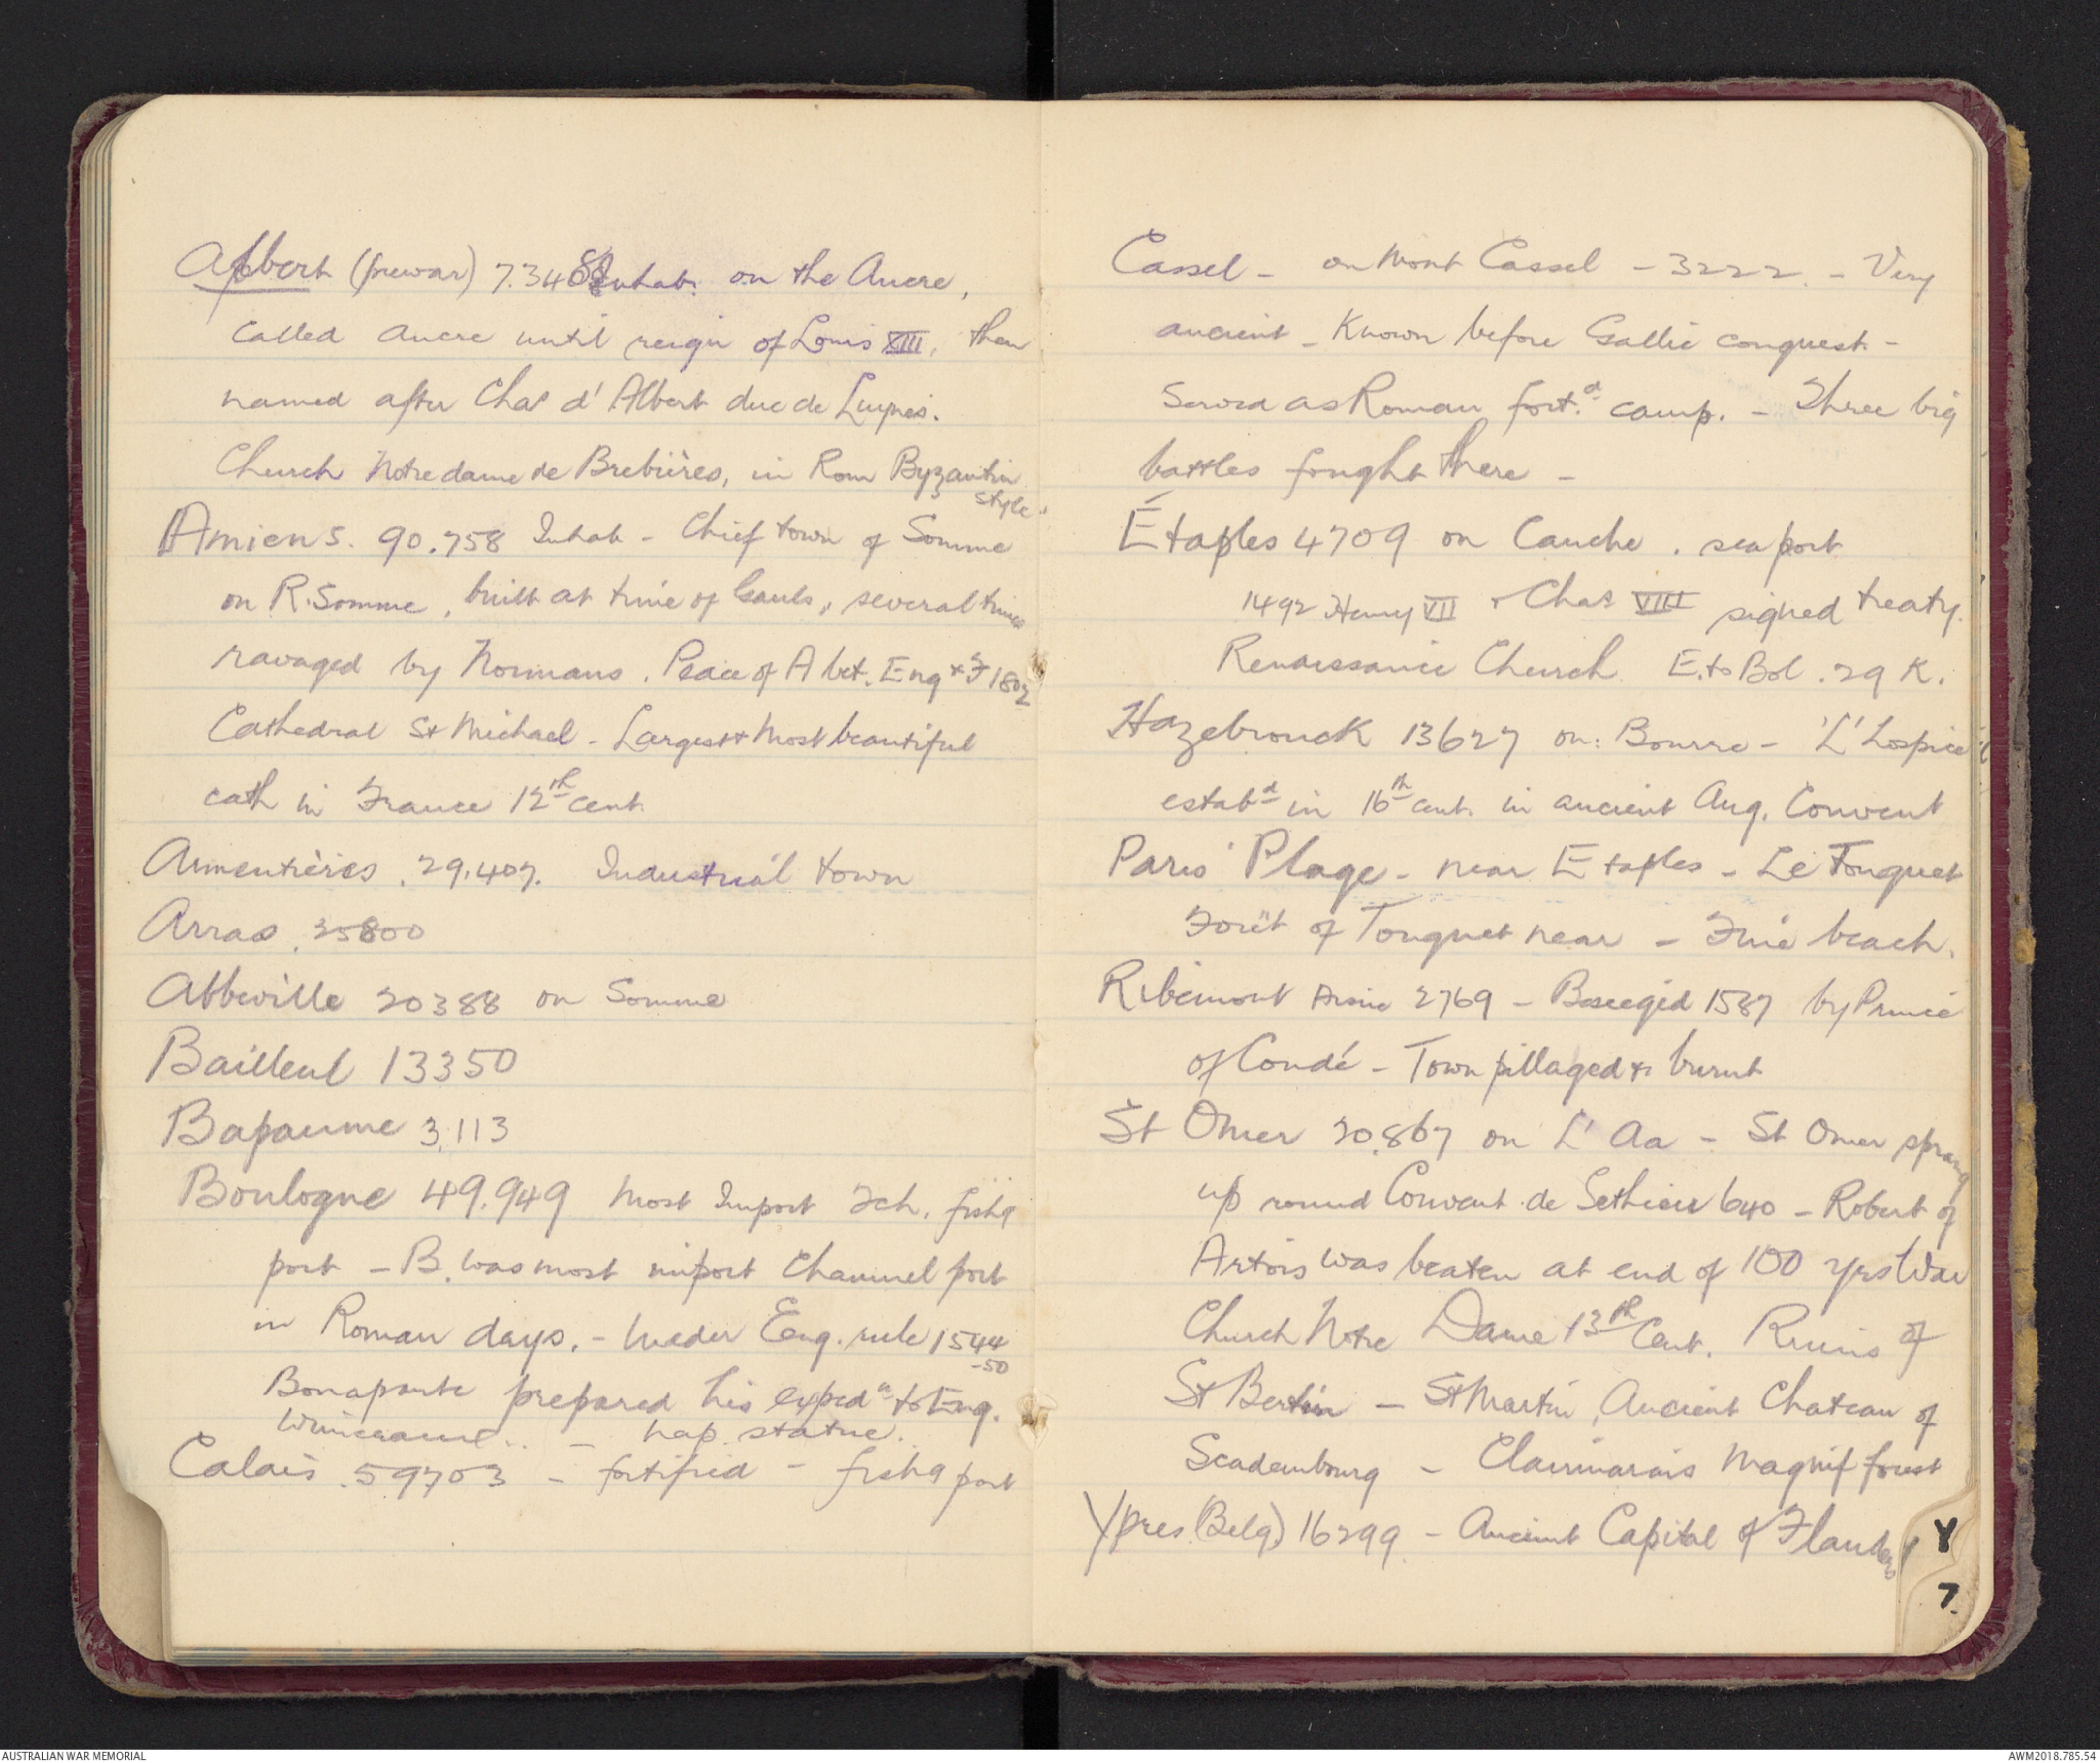 Albert (prewar) 7.348 Inhab. on the Ancre,
called Ancre until reign of Louis XIII, then
named after Chas d'Albert duc de Luynes.
Church Notre dame de Brebières, in Rom Byzantin
style.
Amiens. 90.758 Inhab - Chief town of Somme
on R. Somme, built at time of Gauls, several times
ravaged by Normans. Peace of A bet. Eng + F 1802
Cathedral St Michael - Largest + Most beautiful
cath in France 12th cent.
Armentières. 29.407. Industrial town
Arras. 25800
Abbeville 20388 on Somme
Bailleul 13350
Bapaume 3,113
Boulogne 49.949 Most Import Fch. fishg
port - B. was most import Channel port
in Roman days. - Under Eng. rule 1544
-50
Bonaparte prepared his expedn to Eng.
- Nap. statue.
Calais .59703 - fortified - fishg port
Cassel - on Mont Cassel - 3222. - Very
ancient - Known before Gallic conquest. -
Served as Roman fort.d camp. - Three big
battles fought there -
Étaples 4709 on Canche. seaport
1492 Henry VII + Chas VIII signed treaty.
Renaissance Church E. to Bol. 29 K.
Hazebrouck 13627 on: Bourre - 'L'hospice
estabd in 16th cent. in ancient Aug. Convent
Paris Plage - near Etaples - Le Touquet
Forêt of Touquet near - Fine beach.
Ribemont Aisne 2769 - Beseeged 1587 by Prince
of Condé - Town pillaged + burnt
St Omer 20,867 on L'Aa - St Omer sprang
up round Convent de Sithieu 640 - Robert of
Artois was beaten at end of 100 yrs War
Church Notre Dame 13th Cent. Ruins of
St Bertin - St Martin, Ancient Chateau of
Scadembourg - Clairmarais Magnif forest
Ypres (Belg) 16299 - Ancient Capital of Flanders
Y
7.
AUSTRALIAN WAR MEMORIAL
AWM2018.785.54